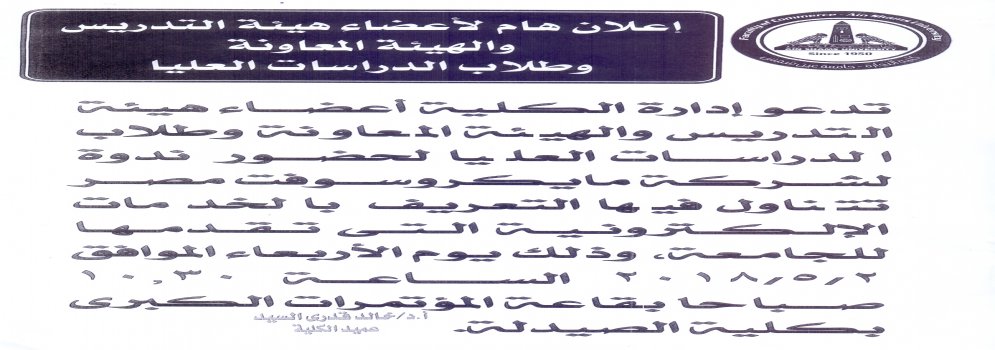 إعلان هام لأعضاء هيئة التدريس
والهيئة المعاونة
وطلاب الدراسات العليا
Faculty of Commerce - Ain Shams University
AIN SHAMS UNIVERSITY
Since 1950
كلية التجارة - جامعة عين شمس
تدعو إدارة الكلية أعضاء هيئة
التدريس والهيئة المعاونة وطلاب
الدراسات العليا لحضور ندوة
لشركة مايكروسوفت مصر
تتناول فيها التعريف بالخدمات
الإلكترونية التى تقدمها
للجامعة، وذلك يوم الأربعاء الموافق
٢٠١٨/٥/٢ الساعة ١٠,٣٠
صباحا بقاعة المؤتمرات الكبرى
بكلية الصيدلة.
أ.د/خالد قدرى السيد
عميد الكلية